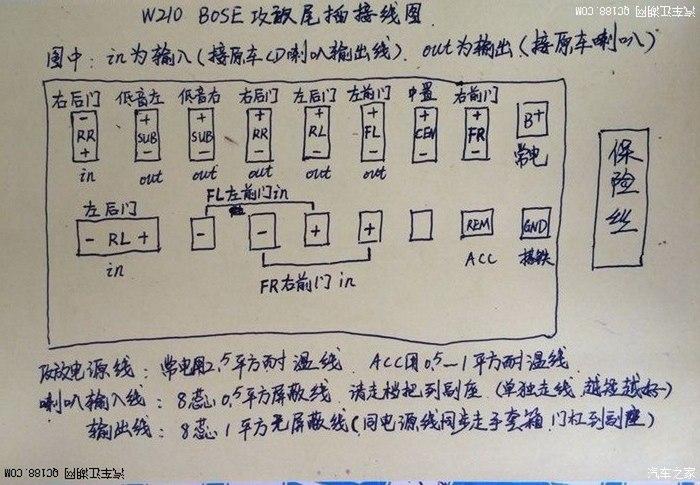 W210 BOSE 攻放尾插接线图
图中: in为输入(接原车CD喇叭输出线). out为输出(接原车喇叭)
右后门 低音左 低音右 右后门 左后门 左前门 中置 右前门
- + + + + + + + B+
RR SUB SUB RR RL FL CEN FR
+ - - - - - - - 常电
in out out out out out
左后门 FL左前门in
- RL + - - + + REM GND
in ACC 搭铁
FR右前门 in
保险丝
攻放电源线: 常电用2.5平方耐温线. ACC用0.5—1平方耐温线
喇叭输入线: 8芯0.5平方屏蔽线 请走档把到副座(单独走线,越短越好)
输出线: 8芯1平方无屏蔽线(同电源线同步走手套箱 门杠到副座)
汽车江湖网
QC188.COM
QC188.COM 汽车江湖网
汽车江湖网 QC188.COM
汽车之家